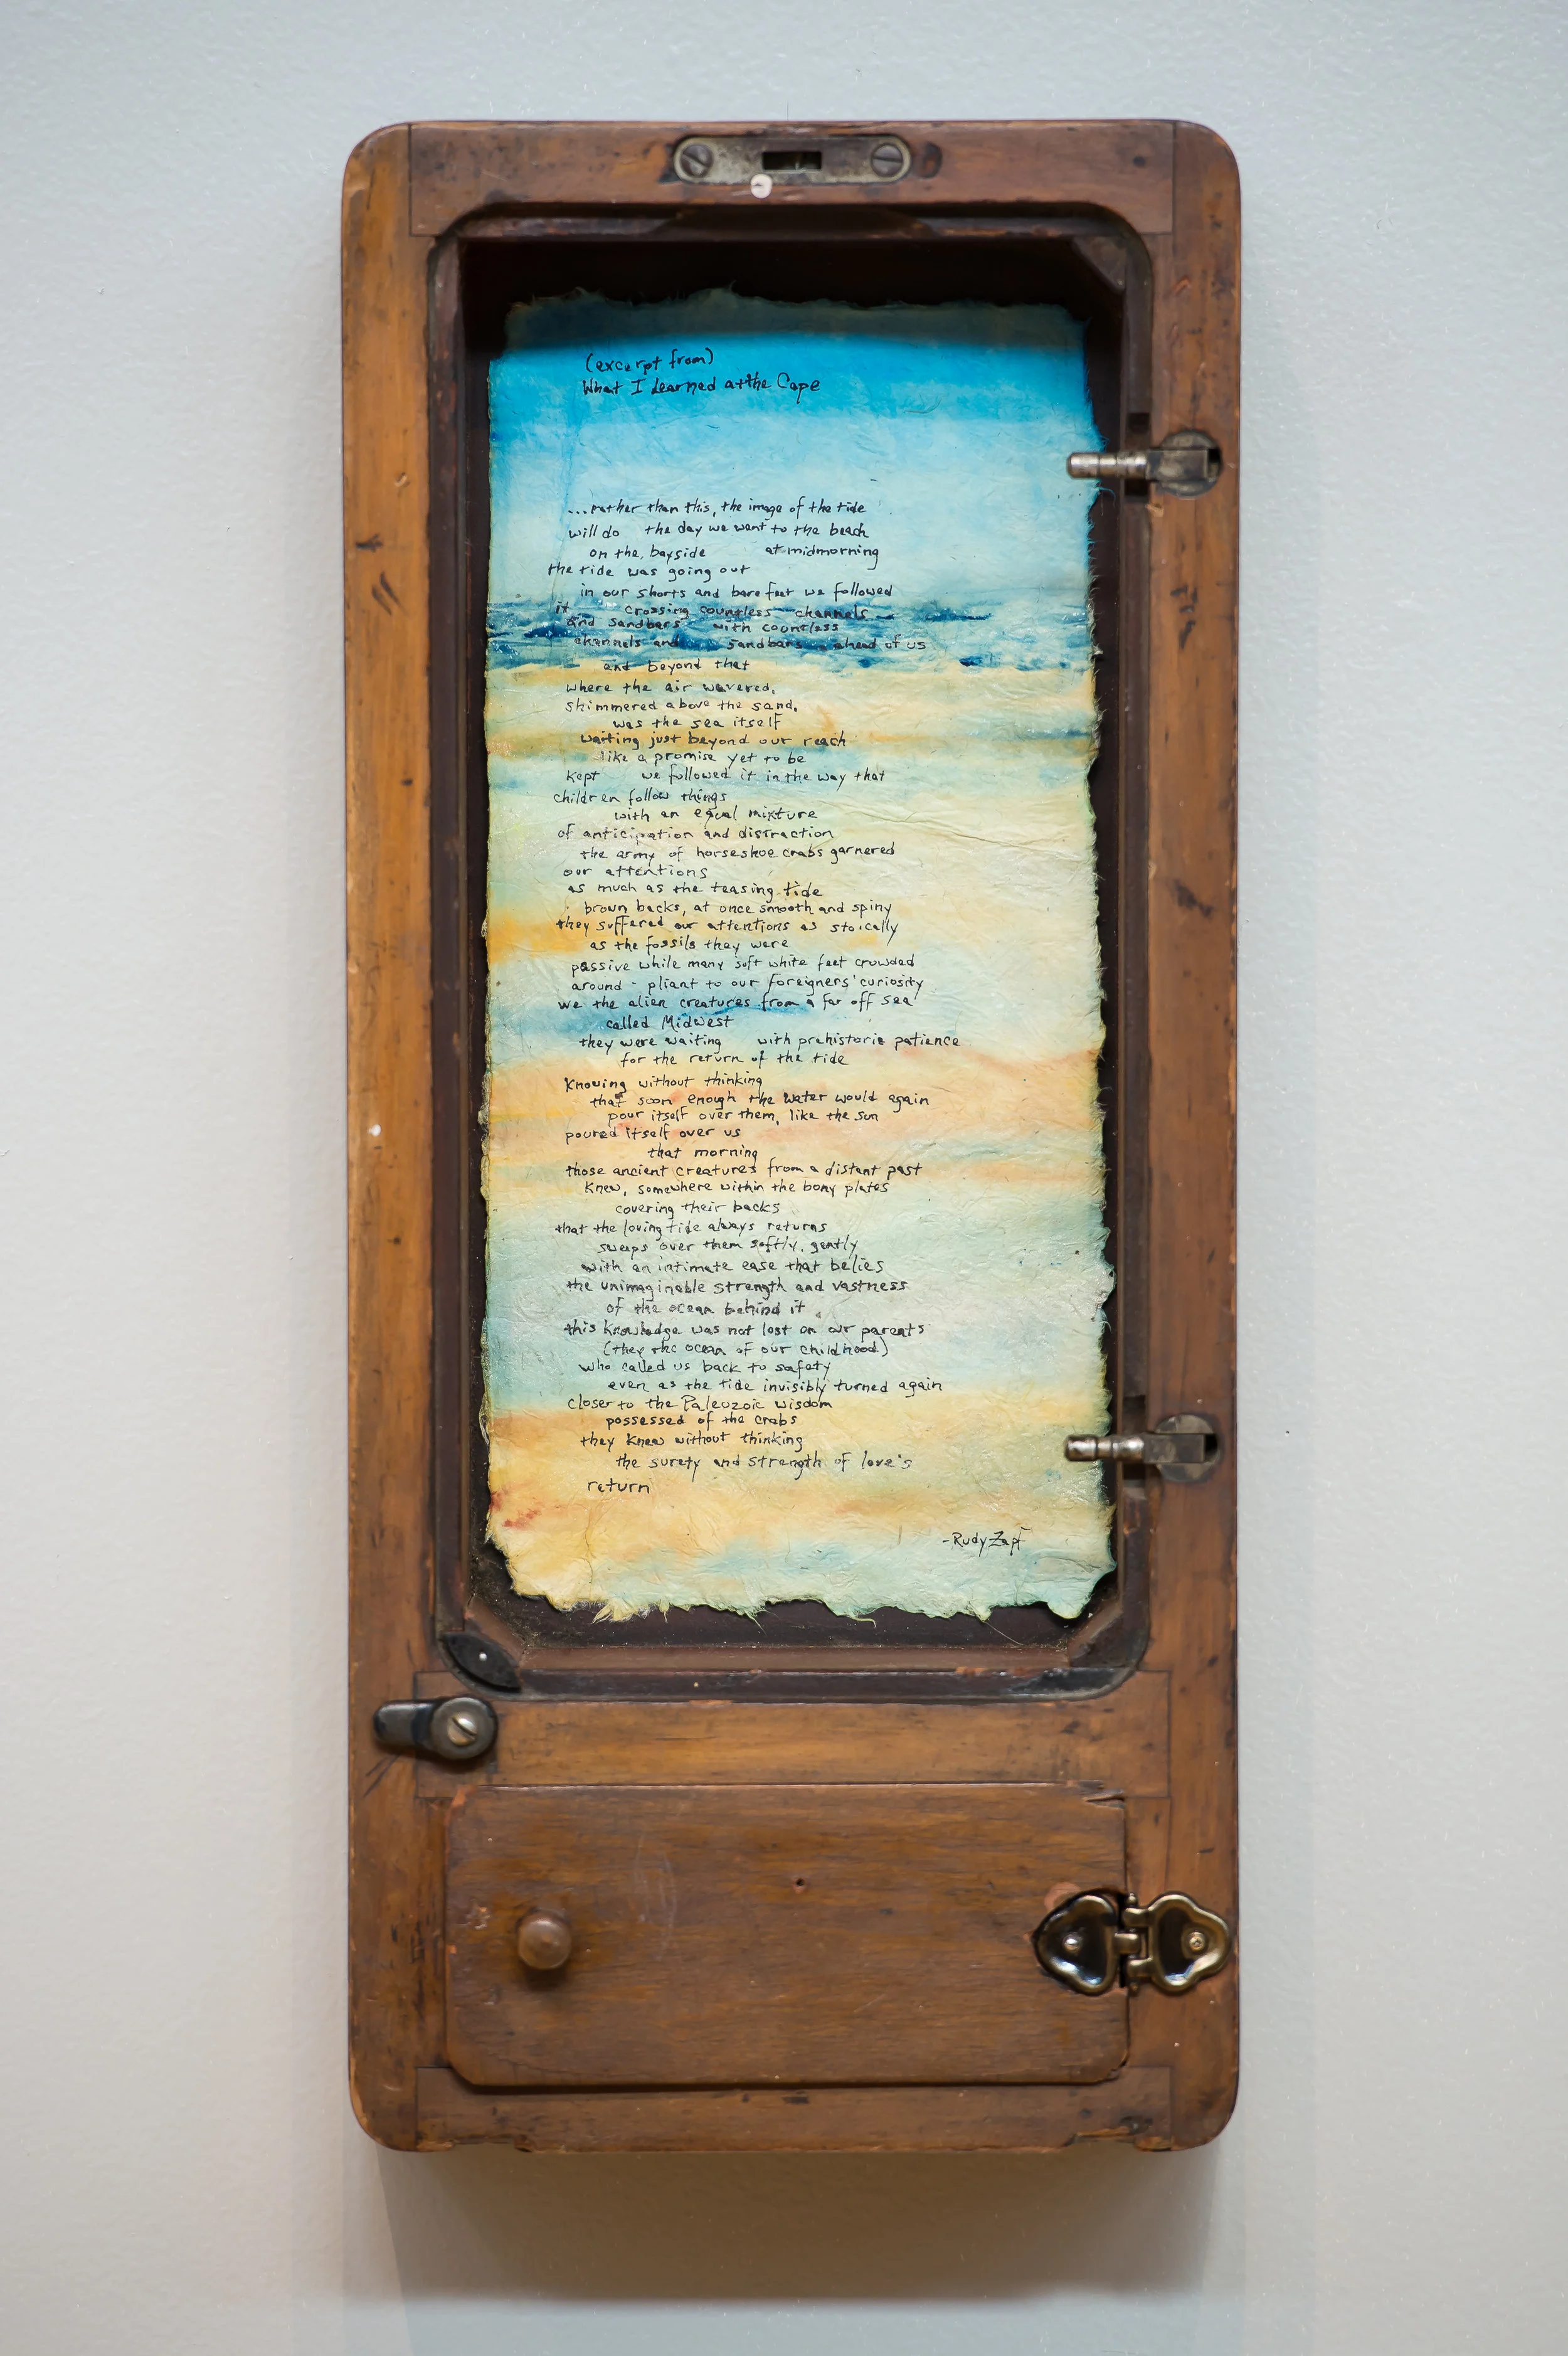 (excerpt from)
What I Learned at the Cape
...rather than this, the image of the tide
will do the day we went to the beach
on the bayside at midmorning
the tide was going out
in our shorts and bare feet we followed
it crossing countless channels
and sandbars with countless
channels and sandbars ahead of us
and beyond that
where the air wavered,
shimmered above the sand,
was the sea itself
waiting just beyond our reach
like a promise yet to be
kept we followed it in the way that
children follow things
with an equal mixture
of anticipation and distraction
the army of horseshoe crabs garnered
our attentions
as much as the teasing tide
brown backs, at once smooth and spiny
they suffered our attentions as stoically
as the fossils they were
passive while many soft white feet crowded
around - pliant to our foreigners' curiosity
we the alien creatures from a far off sea
called Midwest
they were waiting with prehistoric patience
for the return of the tide
knowing without thinking
that soon enough the water would again
pour itself over them, like the sun
poured itself over us
that morning
those ancient creatures from a distant past
knew, somewhere within the bony plates
covering their backs
that the loving tide always returns
sweeps over them softly, gently
with an intimate ease that belies
the unimaginable strength and vastness
of the ocean behind it
this knowledge was not lost on our parents
(they the ocean of our childhood)
who called us back to safety
even as the tide invisibly turned again
closer to the Paleozoic wisdom
possessed of the crabs
they knew without thinking
the surety and strength of love's
return
-Rudy Zapf